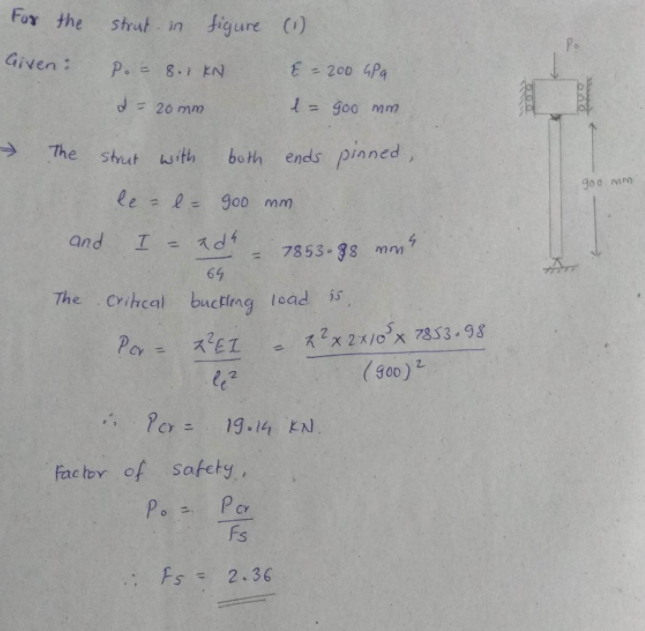 For the strut in figure (1)
Given : P₀ = 8.1 KN E = 200 GPa
d = 20 mm l = 900 mm
→ The strut with both ends pinned,
le = l = 900 mm
and I = πd⁴/64 = 7853.98 mm⁴
The critical buckling load is,
Pcr = π²EI/le² = π² x 2x10⁵ x 7853.98/(900)²
∴ Pcr = 19.14 KN.
Factor of safety,
P₀ = Pcr/Fs
∴ Fs = 2.36
P₀
900 mm